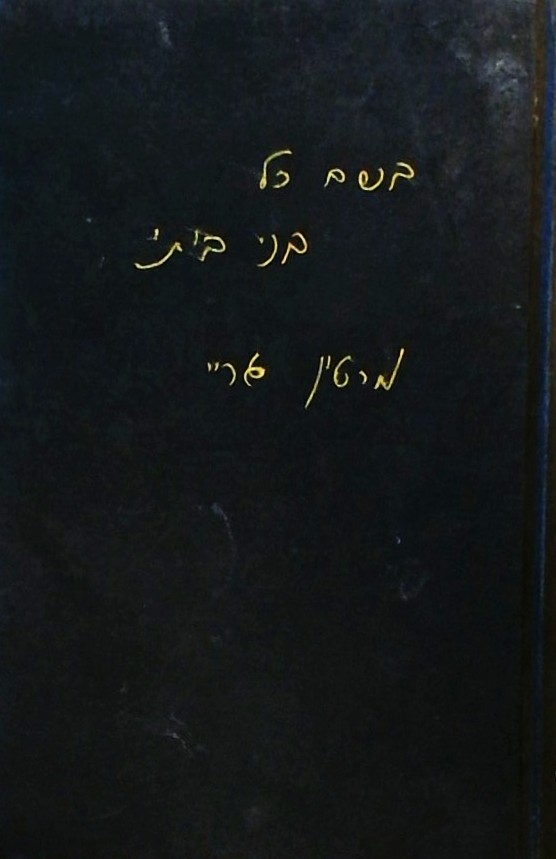 בשם כל
בני ביתי
מרטין גריי